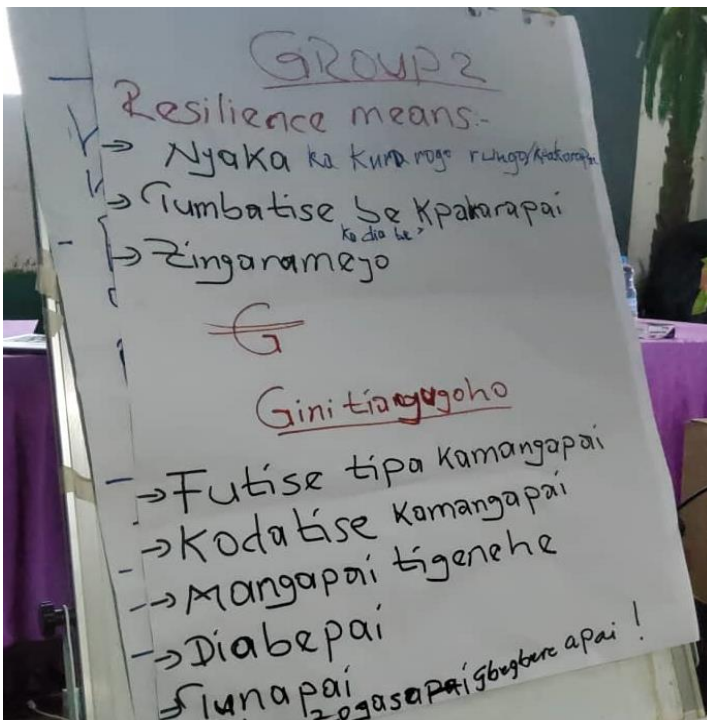 GROUP 2
Resilience means:-
→ Nyaka ka kura rogo rungo/kpakarapai
→ Tumbatise be kpakarapai
ko dia be
→ Zingaramejo
G
Gini tiangugoho
→ Futise tipa kamangapai
→ Kodatise kamangapai
→ Mangapai tigenehe
→ Diabepai
→ Tunapai
zogasapai gbegbere apai!